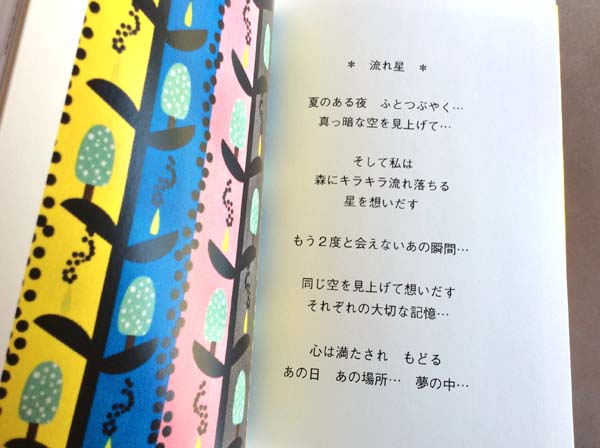 ＊　流れ星　＊
夏のある夜　ふとつぶやく…
真っ暗な空を見上げて…
そして私は
森にキラキラ流れ落ちる
星を想いだす
もう２度と会えないあの瞬間…
同じ空を見上げて想いだす
それぞれの大切な記憶…
心は満たされ　もどる
あの日　あの場所…　夢の中…